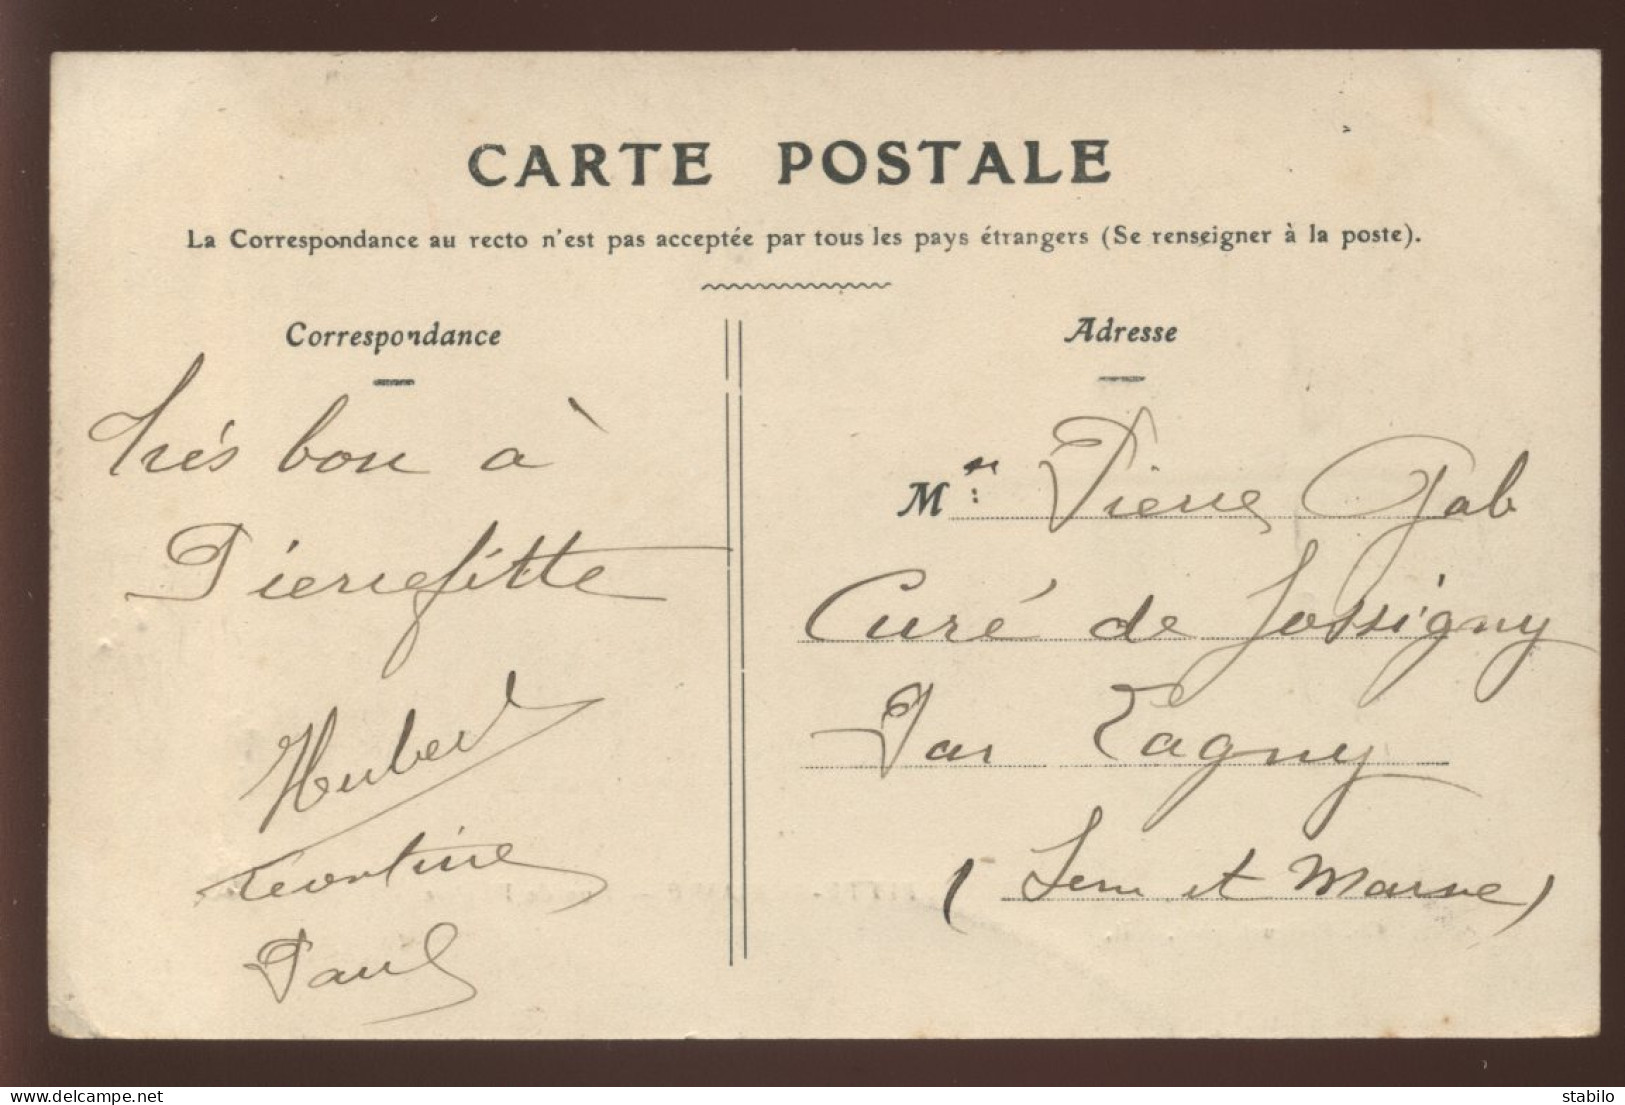 CARTE POSTALE
La Correspondance au recto n'est pas acceptée par tous les pays étrangers (Se renseigner à la poste).
Correspondance
très bon à
Pierrefitte
Hubert
Léontine
Paul
Adresse
M Pierre Gab
Curé de Jossigny
Par Lagny
(Seine et Marne)
www.delcampe.net
stabilo